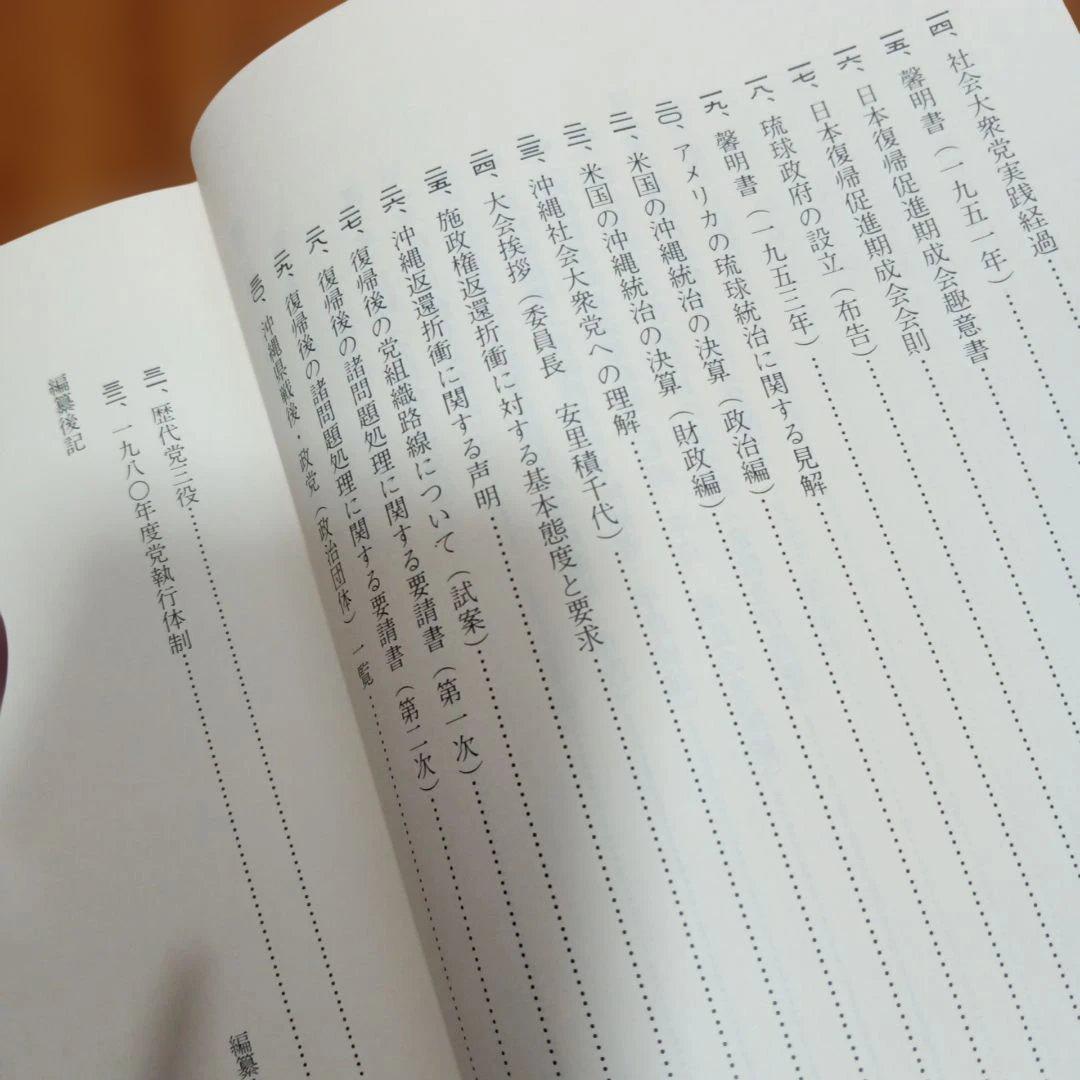 一四、社会大衆党実践経過
一五、馨明書(一九五一年)
一六、日本復帰促進期成会趣意書
一七、日本復帰促進期成会会則
一八、琉球政府の設立(布告)
一九、馨明書(一九五三年)
二〇、アメリカの琉球統治に関する見解
二一、米国の沖縄統治の決算(政治編)
二二、米国の沖縄統治の決算(財政編)
二三、沖縄社会大衆党への理解
二四、大会挨拶(委員長 安里積千代)
二五、施政権返還折衝に対する基本態度と要求
二六、沖縄返還折衝に関する声明
二七、復帰後の党組織路線について(試案)
二八、復帰後の諸問題処理に関する要請書(第一次)
二九、復帰後の諸問題処理に関する要請書(第二次)
三〇、沖縄県戦後・政党(政治団体)一覧
三一、歴代党三役
三二、一九八〇年度党執行体制
編纂後記
編纂